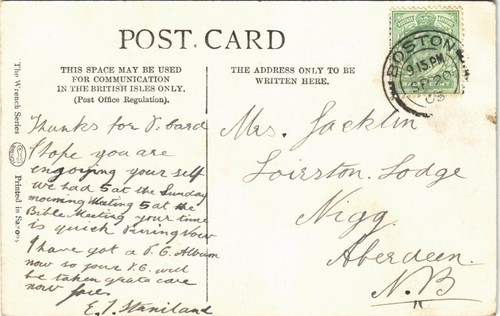 POST CARD
THIS SPACE MAY BE USED
FOR COMMUNICATION
IN THE BRITISH ISLES ONLY.
(Post Office Regulation).
THE ADDRESS ONLY TO BE
WRITTEN HERE.
The Wrench Series
Printed in Saxony
BOSTON
9 15 PM
SP 20
03
Thanks for P. Card
I hope you are
engoying your self
we had 5 at the Sunday
morning Meeting 5 at the
Bible Meeting your time
is quick now
I have got a P.C. Album
now so your P.C. will
be taken care
now
E. J. Staniland
Mrs. Jacklin
Loirston. Lodge
Nigg.
Aberdeen.
N.B